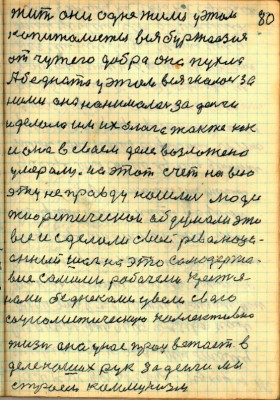 80
жит они одне жили у этом
капиталисты вся буржоазия
от чужего добра она пухла
А беднота у этом вся
нами она нанималас за денги
и делала им их блага также как
и она в своем деле возложено
умерали. на этот счет на всю
эту не правду нашлис люди
тиоритической обдумали эти
все и сделали свой революци-
онный шаг на это самодержа-
вие самими рабочеми крестя-
нами беднеками увели свого
социолитическую колективно
жизн она у нас процветает в
деле наших рук за денги мы
строем коммунизм